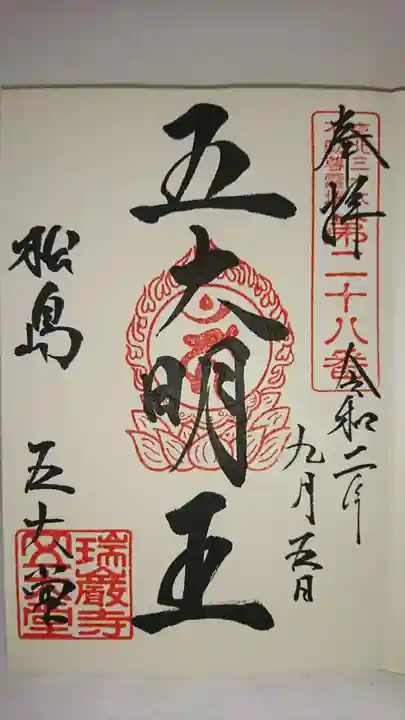 奉拝
第二十八番
令和二年
九月五日
五大明王
松島
五大堂
瑞巖寺
五大堂